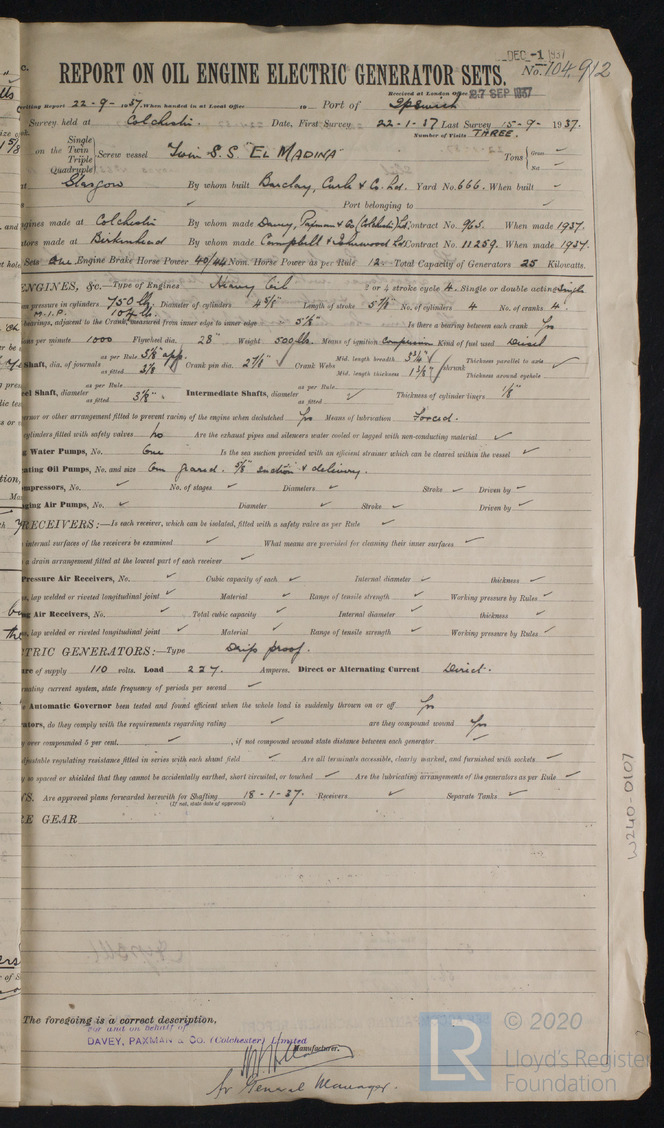 DEC -1 1937
REPORT ON OIL ENGINE ELECTRIC GENERATOR SETS. No. 104,912
Received at London Office 27 SEP 1937
writing Report 22-9-1937. When handed in at Local Office 19 Port of Ipswich
Survey held at Colchester. Date, First Survey 22-1-37 Last Survey 15-9-1937.
Number of Visits THREE.
on the Single Twin Triple Quadruple Screw vessel Twin S.S "EL MADINA" Tons Gross Net
at Glasgow By whom built Barclay, Curle & Co. Ld. Yard No. 666. When built
Port belonging to
Engines made at Colchester By whom made Davey, Paxman & Co (Colchester) Ld. Contract No. 965. When made 1937.
made at Birkenhead By whom made Campbell & Isherwood Ld. Contract No. 11259. When made 1937.
Sets One Engine Brake Horse Power 40/44 Nom. Horse Power as per Rule 12 Total Capacity of Generators 25 Kilowatts.
ENGINES, &c.—Type of Engines Heavy Oil 2 or 4 stroke cycle 4. Single or double acting Single
pressure in cylinders 750 lbs. Diameter of cylinders Length of stroke No. of cylinders 4 No. of cranks 4
M.I.P. 104 lbs
bearings, adjacent to the Crank, measured from inner edge to inner edge Is there a bearing between each crank Yes
per minute 1000 Flywheel dia. 28" Weight 500 lbs. Means of ignition Compression Kind of fuel used Diesel
Shaft, dia. of journals as per Rule as fitted Crank pin dia. 2 7/8" Crank Webs Mid. length breadth Mid. length thickness shrunk Thickness parallel to axis Thickness around eyehole
Shaft, diameter as per Rule as fitted Intermediate Shafts, diameter as per Rule as fitted Thickness of cylinder liners
or other arrangement fitted to prevent racing of the engine when declutched Yes Means of lubrication Forced.
cylinders fitted with safety valves No Are the exhaust pipes and silencers water cooled or lagged with non-conducting material ✓
Water Pumps, No. One Is the sea suction provided with an efficient strainer which can be cleared within the vessel ✓
Oil Pumps, No. and size One geared. 5/8" suction & delivery.
No. ✓ No. of stages ✓ Diameters ✓ Stroke ✓ Driven by ✓
Air Pumps, No. ✓ Diameter Stroke ✓ Driven by ✓
RECEIVERS:—Is each receiver, which can be isolated, fitted with a safety valve as per Rule ✓
internal surfaces of the receivers be examined ✓ What means are provided for cleaning their inner surfaces ✓
a drain arrangement fitted at the lowest part of each receiver ✓
Pressure Air Receivers, No. ✓ Cubic capacity of each ✓ Internal diameter ✓ thickness ✓
lap welded or riveted longitudinal joint ✓ Material ✓ Range of tensile strength ✓ Working pressure by Rules ✓
Air Receivers, No. ✓ Total cubic capacity ✓ Internal diameter ✓ thickness ✓
lap welded or riveted longitudinal joint ✓ Material ✓ Range of tensile strength ✓ Working pressure by Rules ✓
TRIC GENERATORS:—Type Drip proof.
of supply 110 volts. Load 227. Amperes. Direct or Alternating Current Direct.
current system, state frequency of periods per second ✓
Automatic Governor been tested and found efficient when the whole load is suddenly thrown on or off Yes
do they comply with the requirements regarding rating ✓ are they compound wound Yes
over compounded 5 per cent. ✓, if not compound wound state distance between each generator ✓
regulating resistance fitted in series with each shunt field ✓ Are all terminals accessible, clearly marked, and furnished with sockets ✓
so spaced or shielded that they cannot be accidentally earthed, short circuited, or touched ✓ Are the lubricating arrangements of the generators as per Rule ✓
Are approved plans forwarded herewith for Shafting 18-1-37. Receivers ✓ Separate Tanks ✓
(If not, state date of approval)
RE GEAR
W240-0107
The foregoing is a correct description,
For and on behalf of
DAVEY, PAXMAN & CO. (Colchester) Limited
Manufacturer.
for General Manager.
© 2020
LR
Lloyd's Register
Foundation